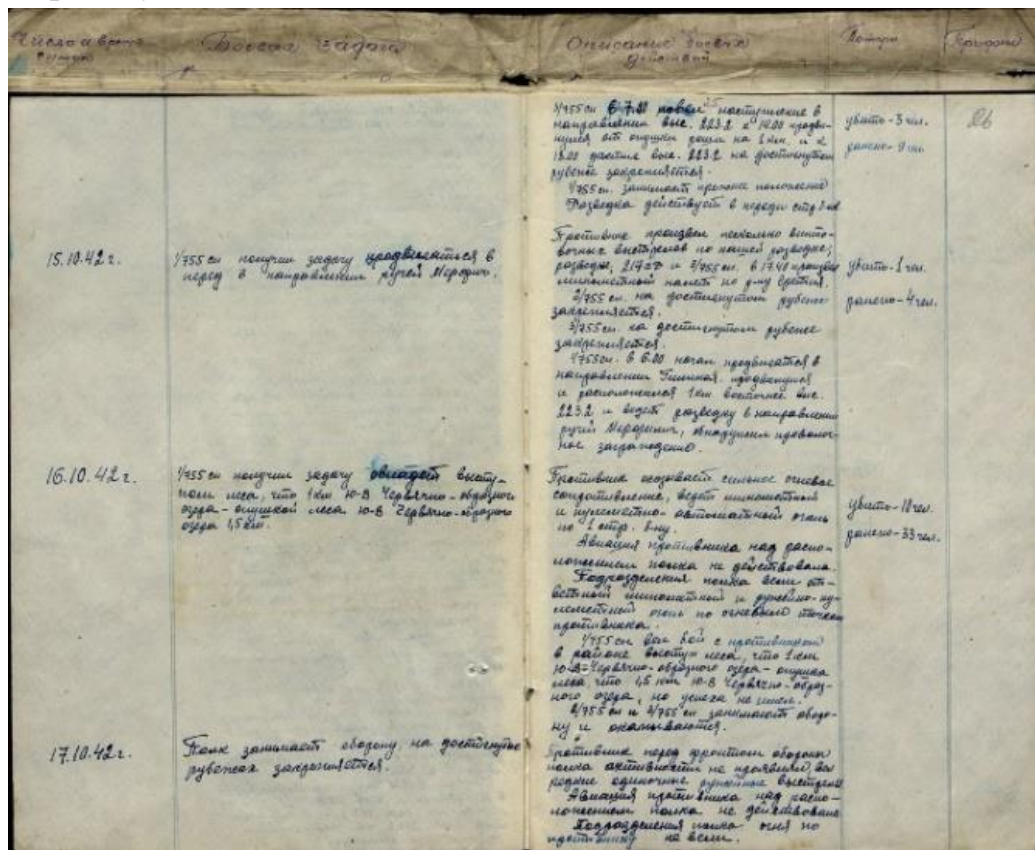 Число и время суток
Боевая задача
Описание боевых действий
Потери
Трофеи
26
3/755 сп в 7.00 повел наступление в
направлении выс. 223.2 к 14.00 продви-
нулся от опушки рощи на 1 км. и к
18.00 достиг выс. 223.2 на достигнутом
рубеже закрепляется.
1/755 сп. занимает прежнее положение
Разведка действует в
убито-3 чел.
ранено-9 чел.
15.10.42 г.
1/755 сп получил задачу продвигаться в
перед в направлении ручей
Противник произвел несколько винто-
вочных выстрелов по нашей разведке,
и 3/755 сп. в 17.40 произвел
минометный налет по
2/755 сп. на достигнутом рубеже
закрепляется.
3/755 сп. на достигнутом рубеже
закрепляется.
1/755 сп. в 6.00 начал продвигаться в
направлении продвинулся
и расположился 1 км восточнее выс.
223.2 и ведет разведку в направлении
ручей обнаружил проволоч-
ное заграждение.
убито-1 чел.
ранено-4 чел.
16.10.42 г.
1/755 сп получил задачу овладеть высту-
пом леса, что 1 км Ю-В Червячно-образного
озера - опушкой леса Ю-В Червячно-образного
озера 1,5 км.
Противник оказывает сильное огневое
сопротивление, ведет минометный
и пулеметно-автоматный огонь
по 1 стр. б-ну.
Авиация противника над распо-
ложением полка не действовала.
Подразделения полка вели от-
ветный минометный и ружейно-пу-
леметный огонь по огневым точкам
противника.
1/755 сп вел бой с противником
в районе выступ леса, что 1 км
Ю-В Червячно-образного озера - опушка
леса, что 1,5 км Ю-В Червячно-образ-
ного озера, но успеха не имел.
2/755 сп и 3/755 сп занимают оборо-
ну и окапываются.
убито-10 чел.
ранено-33 чел.
17.10.42 г.
Полк занимает оборону, на достигнутых
рубежах закрепляется.
Противник перед фронтом обороны
полка активности не проявлял, вел
редкие одиночные ружейные выстрелы
Авиация противника над распо-
ложением полка не действовала
Подразделения полка огня по
противнику не вели.